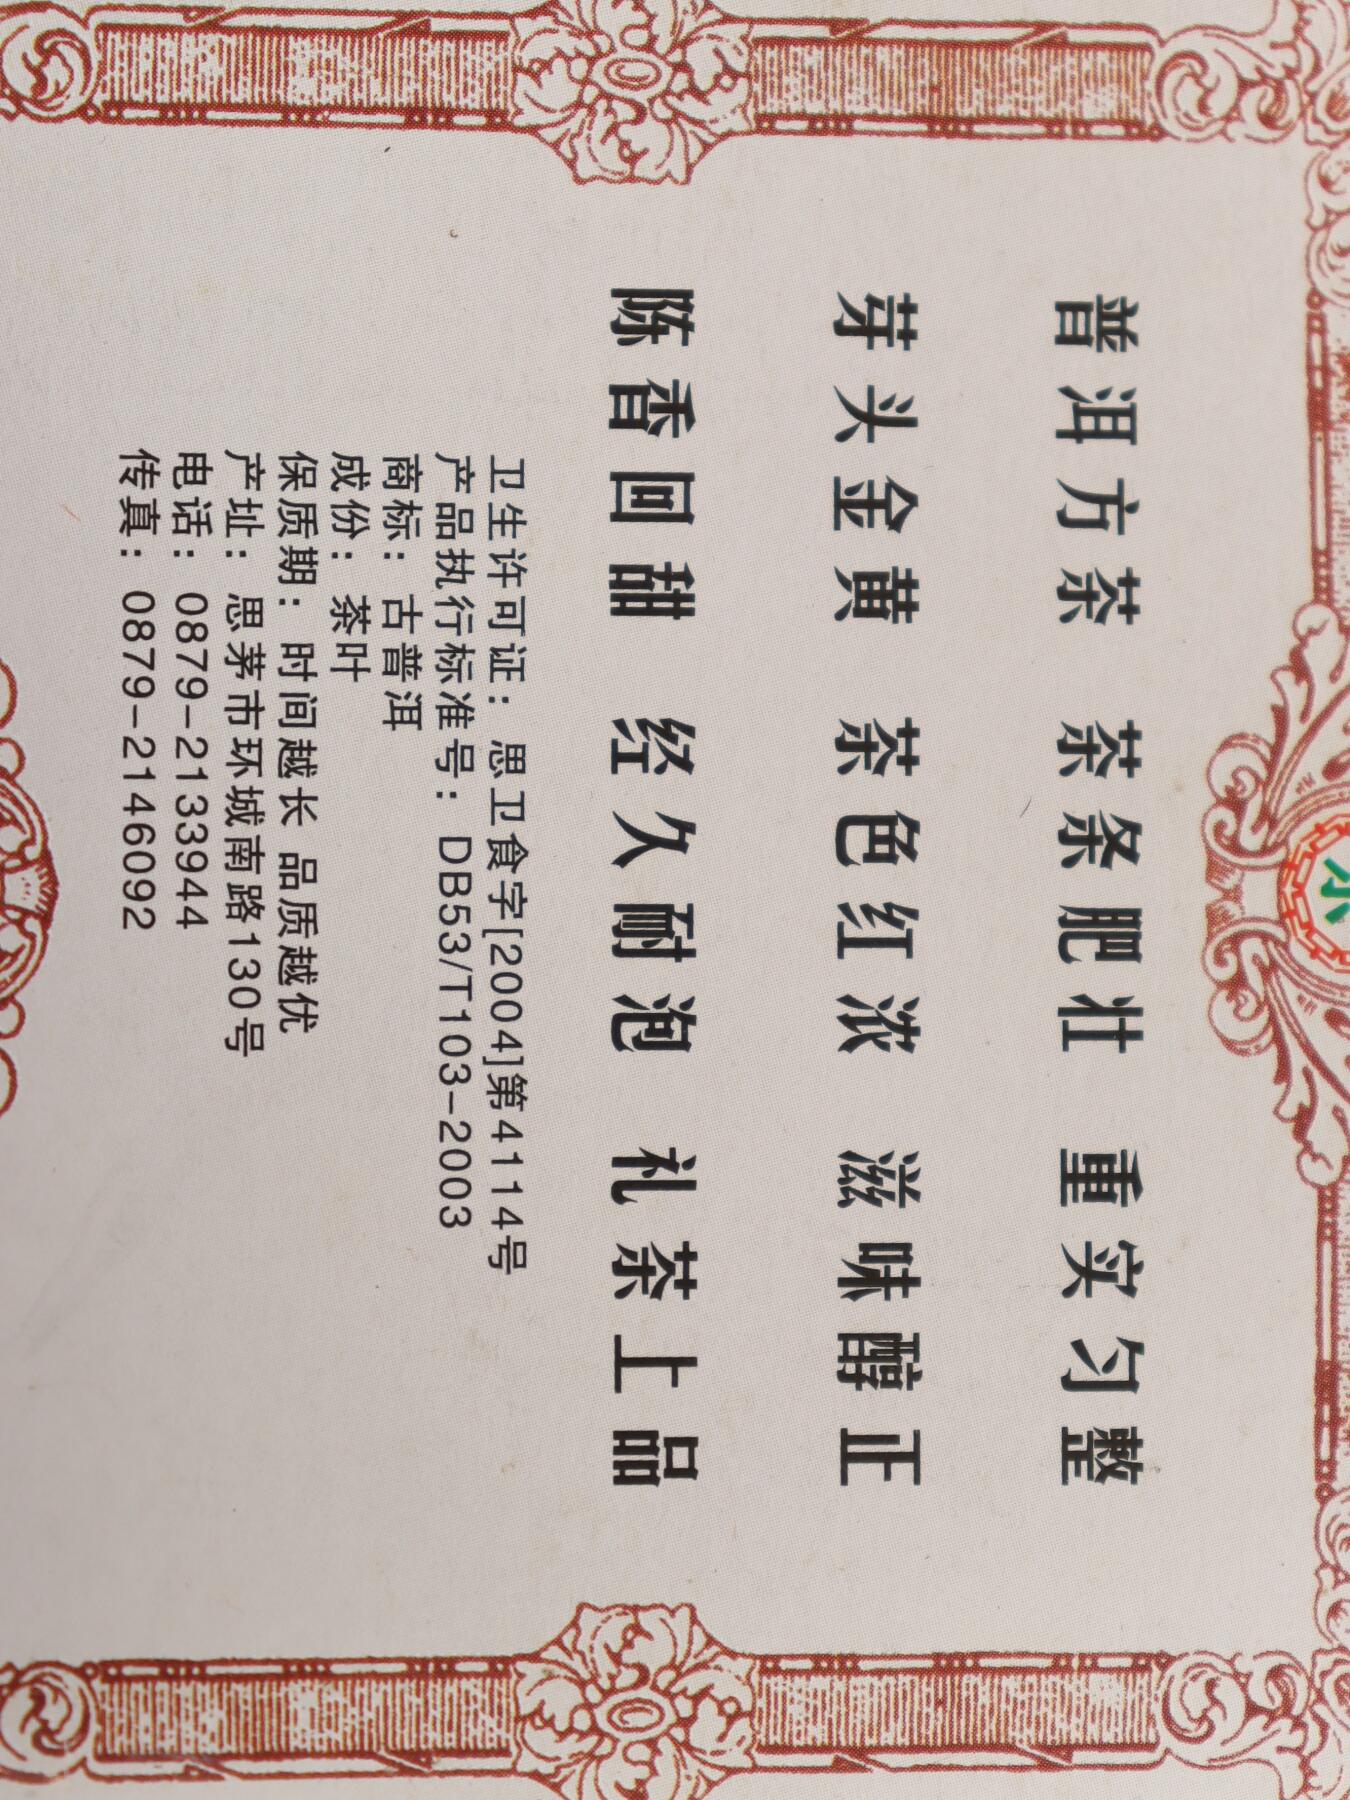 普洱方茶 茶条肥壮 重实匀整
芽头金黄 茶色红浓 滋味醇正
陈香回甜 经久耐泡 礼茶上品
卫生许可证：思卫食字[2004]第4114号
产品执行标准号：DB53/T103-2003
商标：古普洱
成份：茶叶
保质期：时间越长 品质越优
产址：思茅市环城南路130号
电话：0879-2133944
传真：0879-2146092